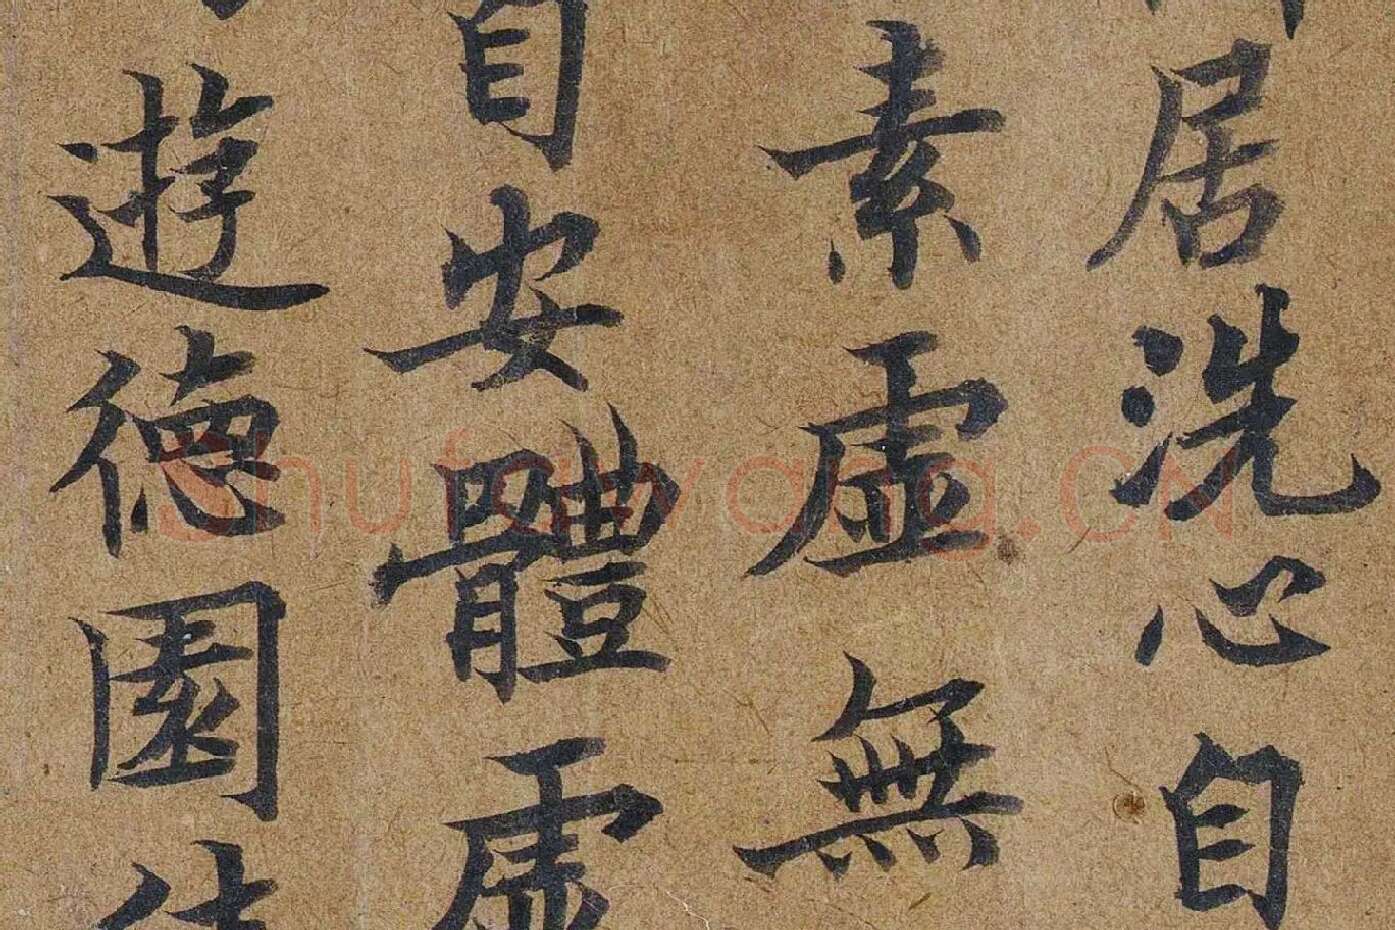 居洗心自
素虛無
自安體虛
遊德園
Shufawang.CN